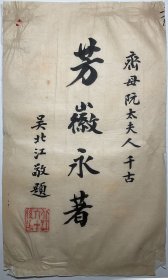 齋母阮太夫人千古
芳徽永著
吳北江敬題